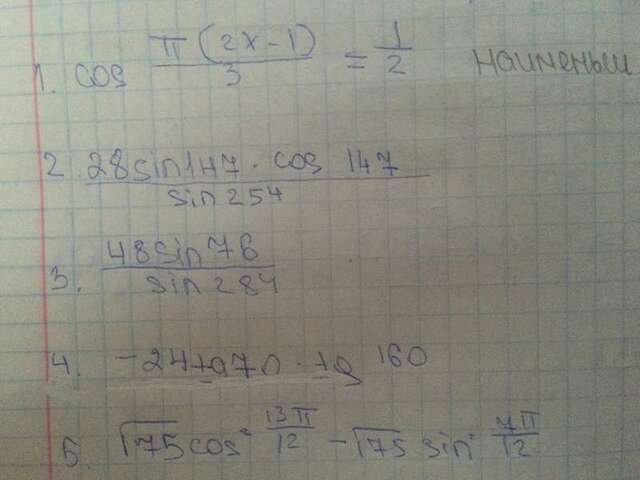 1. cos π(2x-1)/3 = 1/2 наименьш
2. 28sin147 · cos 147 / sin254
3. 48sin76 / sin284
4. -24tg70 · tg 160
5. √75cos² 13π/12 - √75 sin² 7π/12